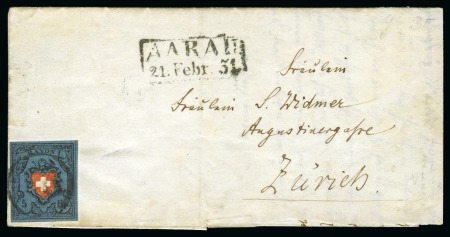 AARAU
21. Febr. 51
Fräulein
Fräulein S. Widmer
Augustinergasse
Zürich.